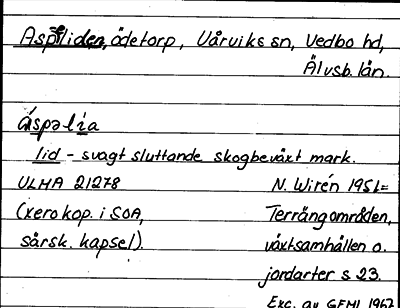 Aspeliden, ödetorp, Vårviks sn, Vedbo hd,
Älvsb. län.
áspəlìa
lid - svagt sluttande skogbeväxt mark.
ULMA 21278 N. Wirén 1951=
(xerokop. i SOA, Terrängområden,
särsk. kapsel). växtsamhällen o.
jordarter s 23.
Exc. av GFMI 1967